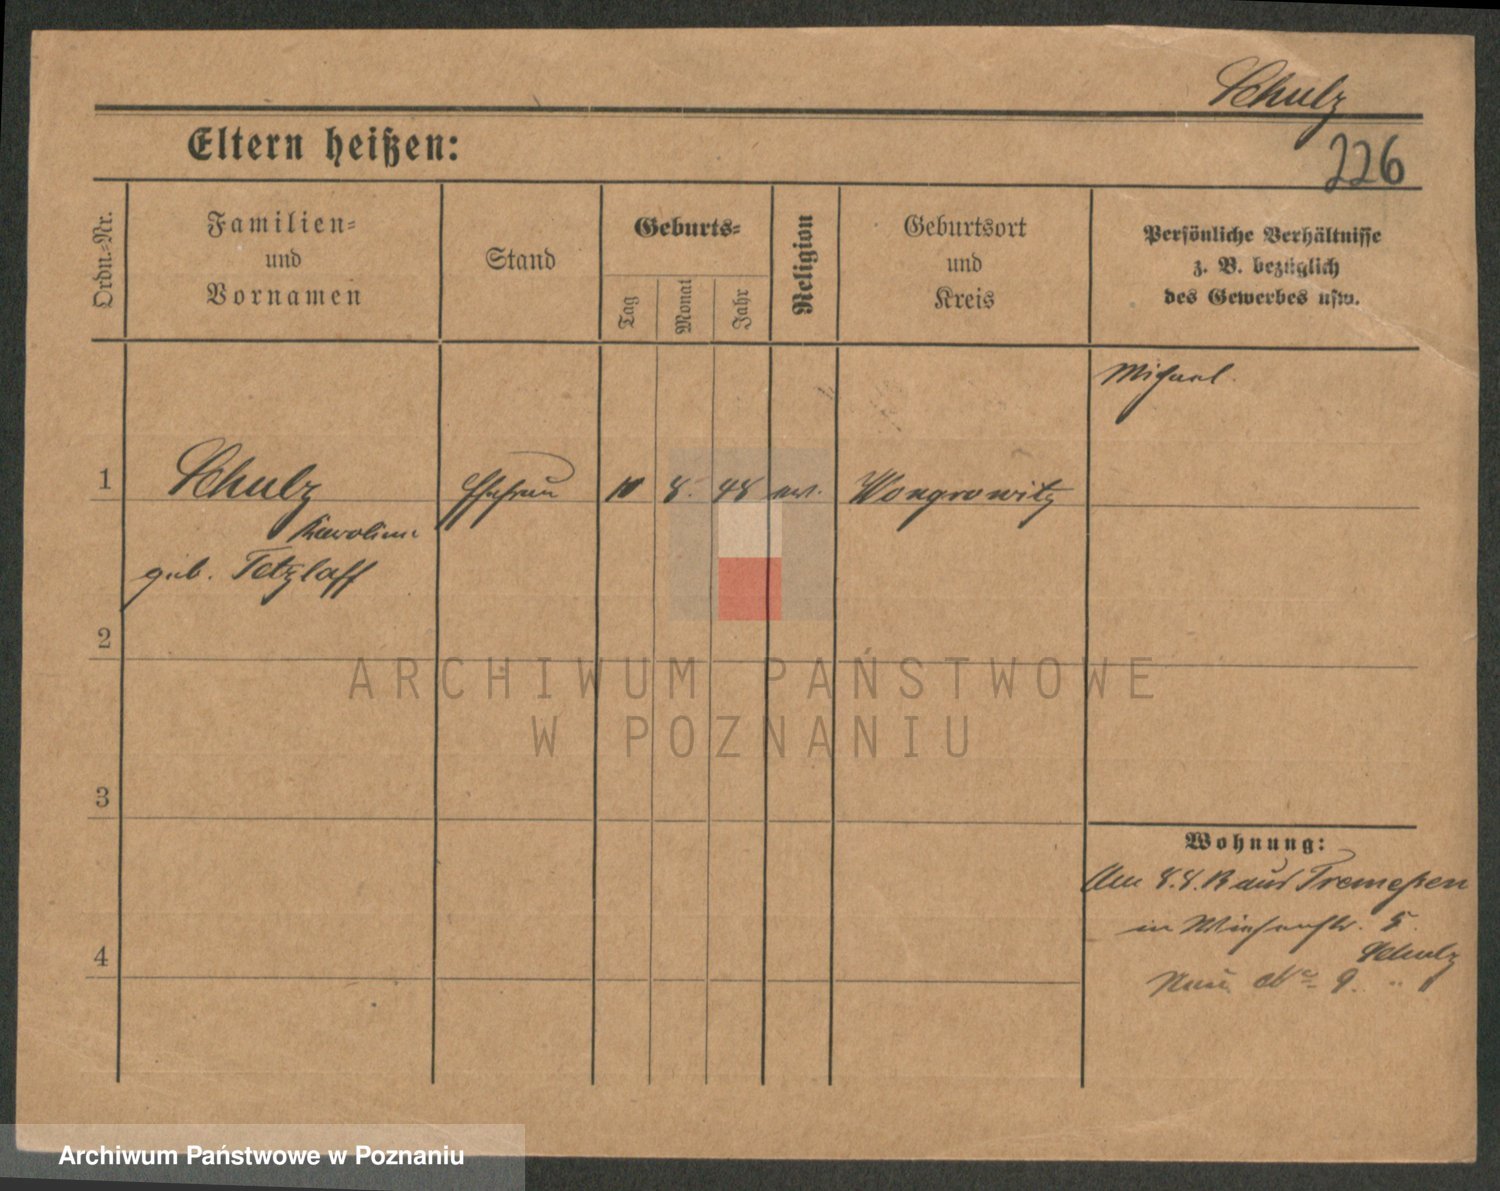 Schulz
226
Eltern heißen:
Ordn.-Nr.
Familien-
und
Vornamen
Stand
Geburts-
Tag
Monat
Jahr
Religion
Geburtsort
und
Kreis
Persönliche Verhältnisse
z. B. bezüglich
des Gewerbes usw.
Michael
1 Schulz Ehefrau 10 8. 48 ev. Wongrowitz
Karoline
geb. Tetzlaff
2
3
4
Wohnung:
Am 8.8. aus Tremeßen
in Wiesenstr. 5.
Schulz
Neue No 9. "
ARCHIWUM PAŃSTWOWE
W POZNANIU
Archiwum Państwowe w Poznaniu